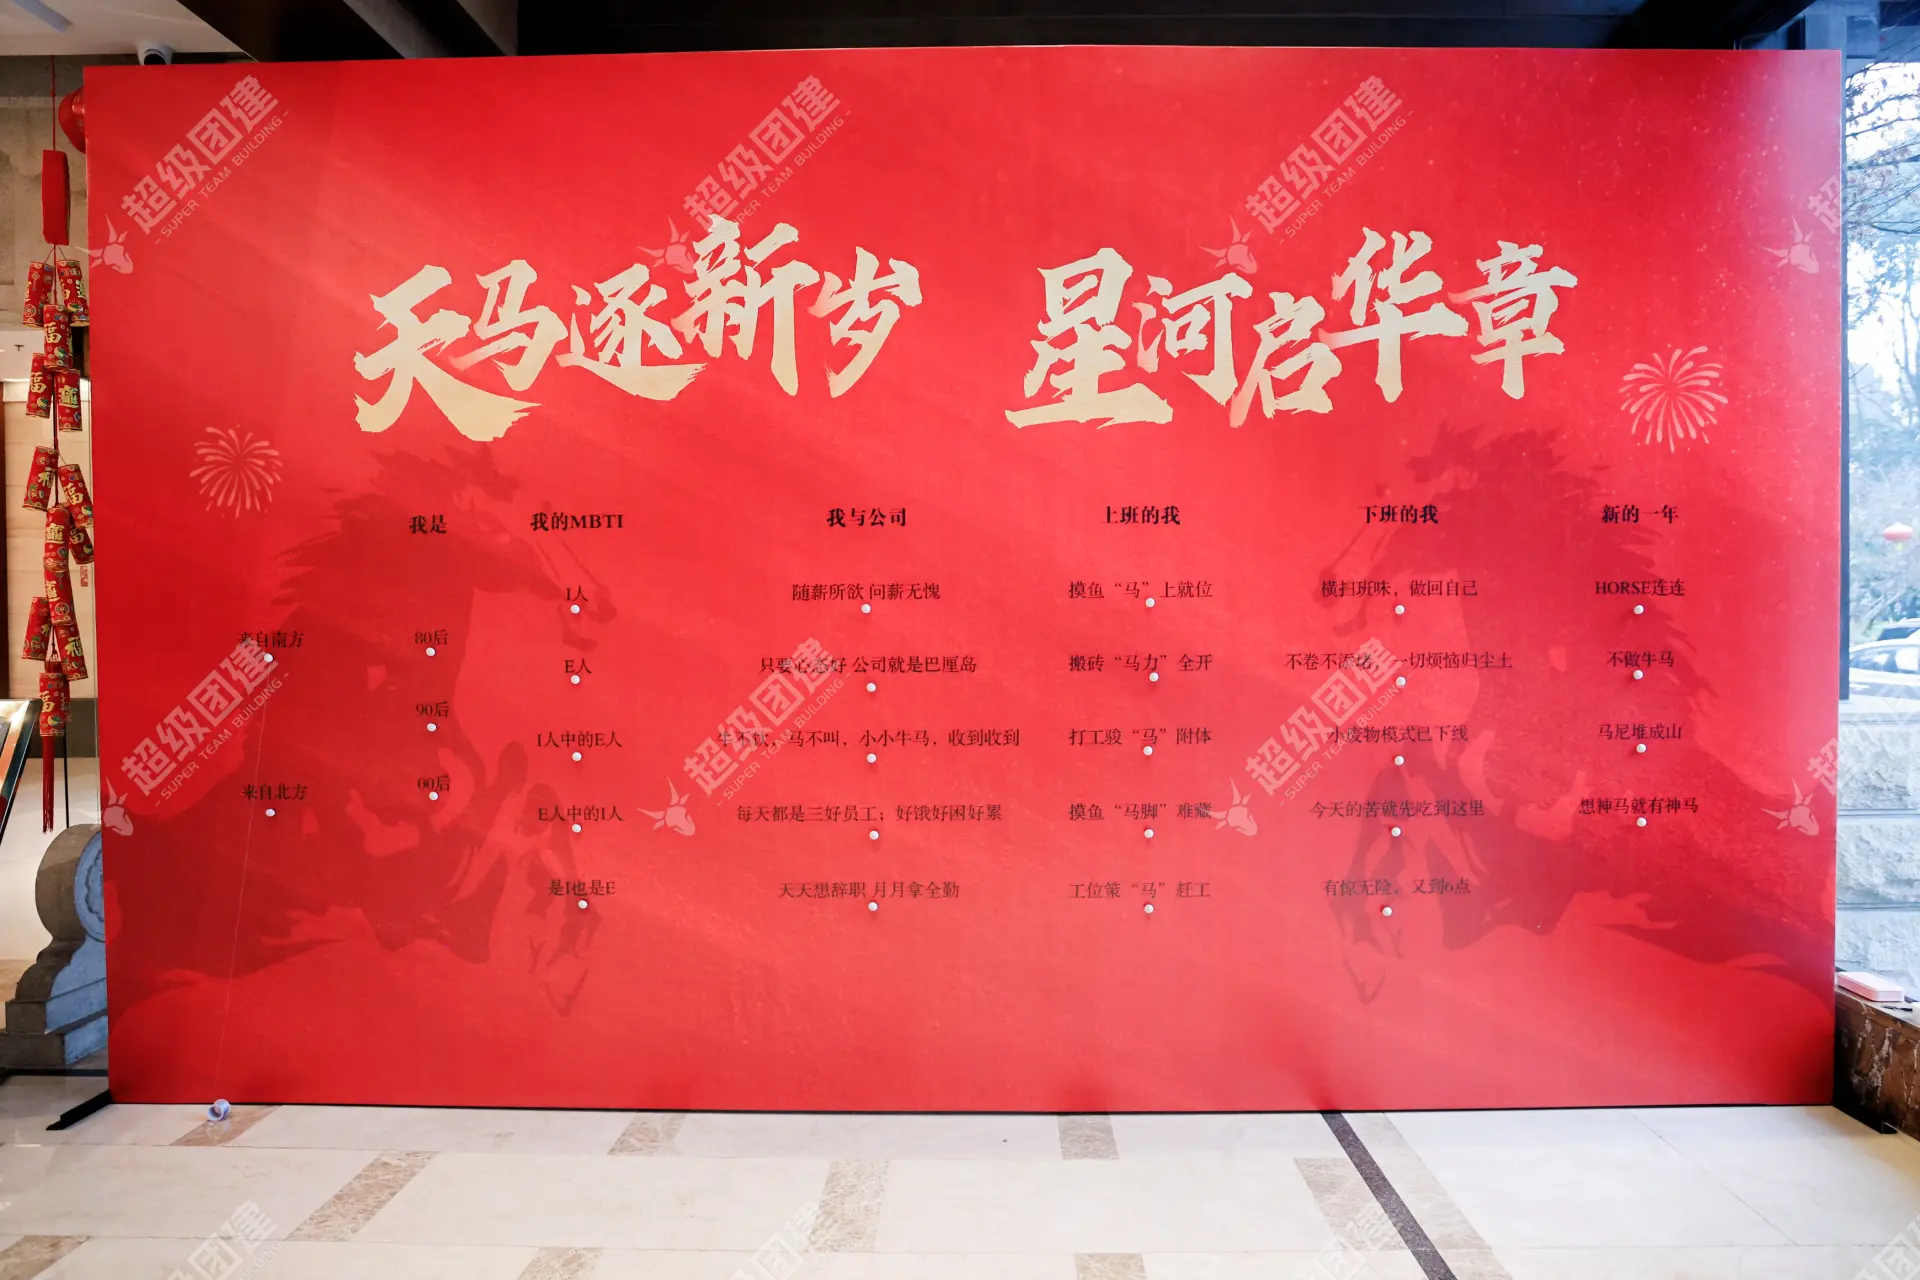 天马逐新岁 星河启华章
我是 我的MBTI 我与公司 上班的我 下班的我 新的一年
I人 随薪所欲 问薪无愧 摸鱼“马”上就位 横扫班味，做回自己 HORSE连连
来自南方 80后
E人 只要心态好 公司就是巴厘岛 搬砖“马力”全开 不卷不添堵，一切烦恼归尘土 不做牛马
90后
I人中的E人 牛不饮，马不叫，小小牛马，收到收到 打工骏“马”附体 小废物模式已下线 马尼堆成山
来自北方 00后
E人中的I人 每天都是三好员工；好饿好困好累 摸鱼“马脚”难藏 今天的苦就先吃到这里 想神马就有神马
是I也是E 天天想辞职 月月拿全勤 工位策“马”赶工 有惊无险，又到6点
超级团建
SUPER TEAM BUILDING
超级团建
SUPER TEAM BUILDING
超级团建
SUPER TEAM BUILDING
超级团建
SUPER TEAM BUILDING
超级团建
SUPER TEAM BUILDING
超级团建
SUPER TEAM BUILDING
福
福
福
福
福
福